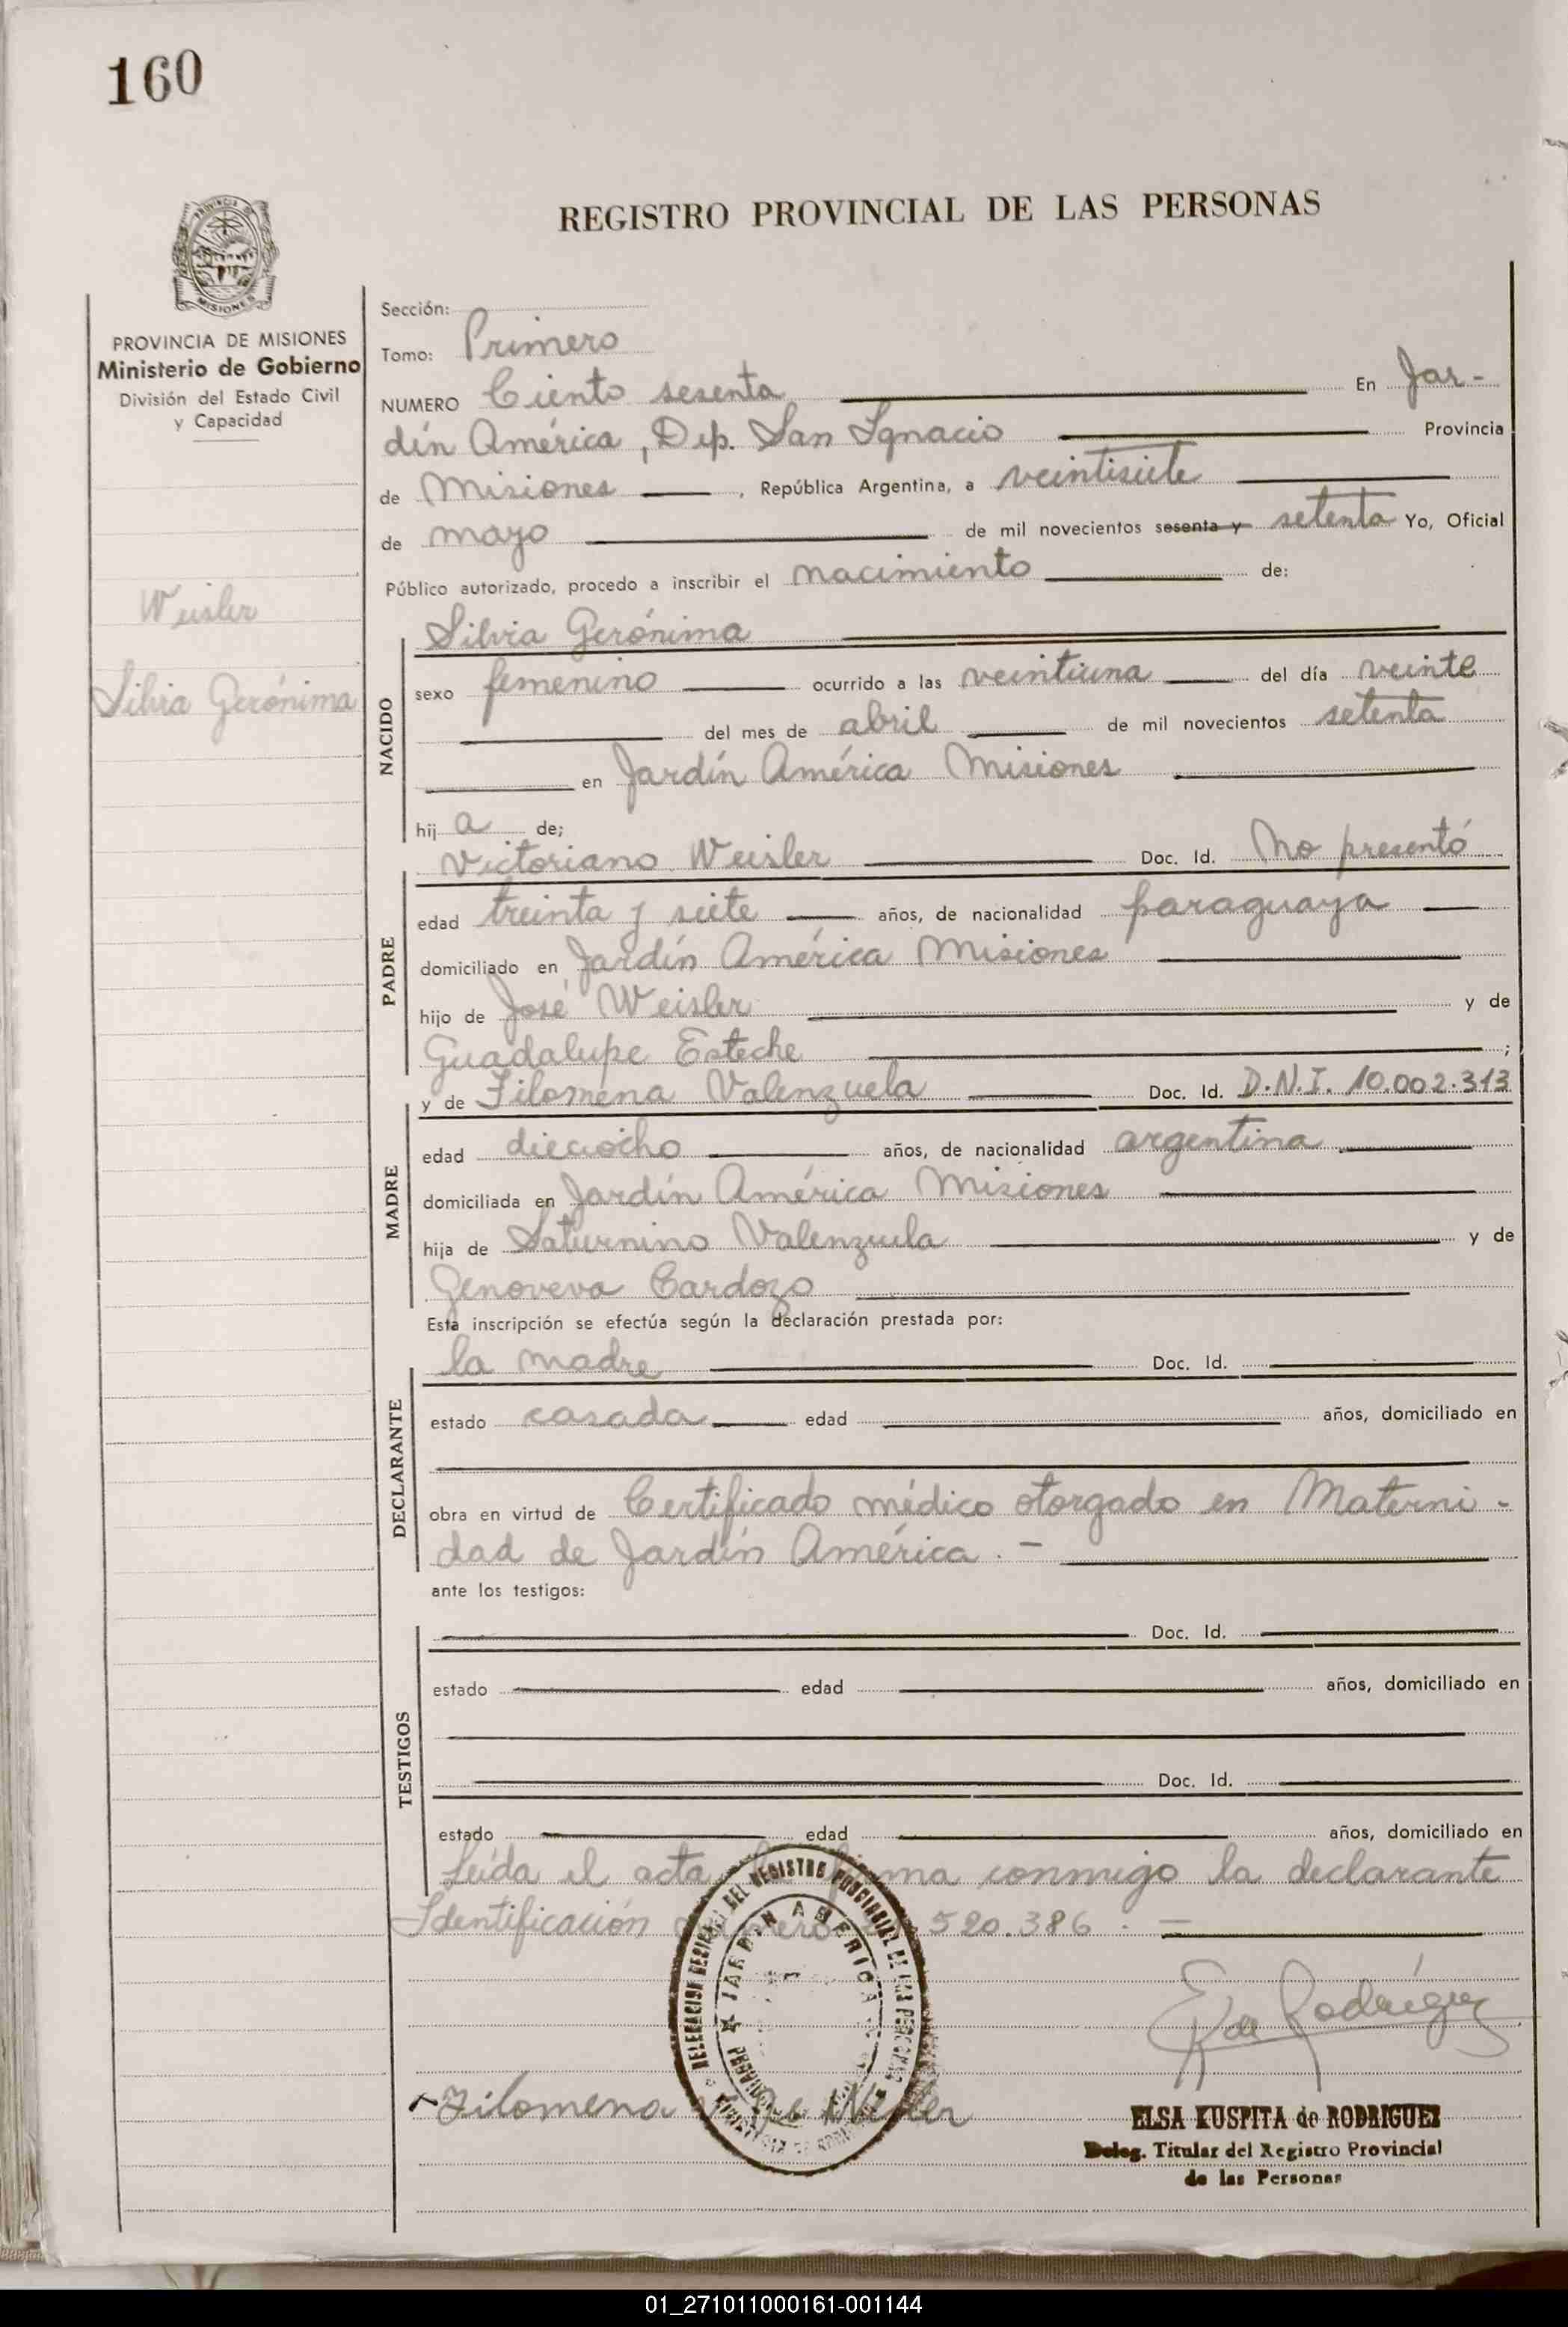 160
REGISTRO PROVINCIAL DE LAS PERSONAS
PROVINCIA DE
MISIONES
PROVINCIA DE MISIONES
Ministerio de Gobierno
División del Estado Civil
y Capacidad
Weisler
Silvia Gerónima
Sección:
Tomo: Primero
NUMERO Ciento sesenta En Jar-
dín América, Dep. San Ignacio Provincia
de Misiones, República Argentina, a veintisiete
de mayo de mil novecientos sesenta y setenta Yo, Oficial
Público autorizado, procedo a inscribir el nacimiento de:
NACIDO
Silvia Gerónima
sexo femenino ocurrido a las veintiuna del día veinte
del mes de abril de mil novecientos setenta
en Jardín América Misiones
hij a de;
PADRE
Victoriano Weisler Doc. Id. No presentó
edad treinta y siete años, de nacionalidad paraguaya
domiciliado en Jardín América Misiones
hijo de José Weisler y de
Guadalupe Esteche ;
MADRE
y de Filomena Valenzuela Doc. Id. D.N.I. 10.002.313
edad dieciocho años, de nacionalidad argentina
domiciliada en Jardín América Misiones
hija de Saturnino Valenzuela y de
Genoveva Cardozo
Esta inscripción se efectúa según la declaración prestada por:
DECLARANTE
la madre Doc. Id.
estado casada edad años, domiciliado en
obra en virtud de Certificado médico otorgado en Materni-
dad de Jardín América.-
ante los testigos:
TESTIGOS
Doc. Id.
estado edad años, domiciliado en
Doc. Id.
estado edad años, domiciliado en
Leída el acta firma conmigo la declarante
Identificación número 520.386.-
JARDIN AMERICA
E K de Rodríguez
Filomena de Weisler
ELSA KUSPITA de RODRIGUEZ
Deleg. Titular del Registro Provincial
de las Personas
01_271011000161-001144